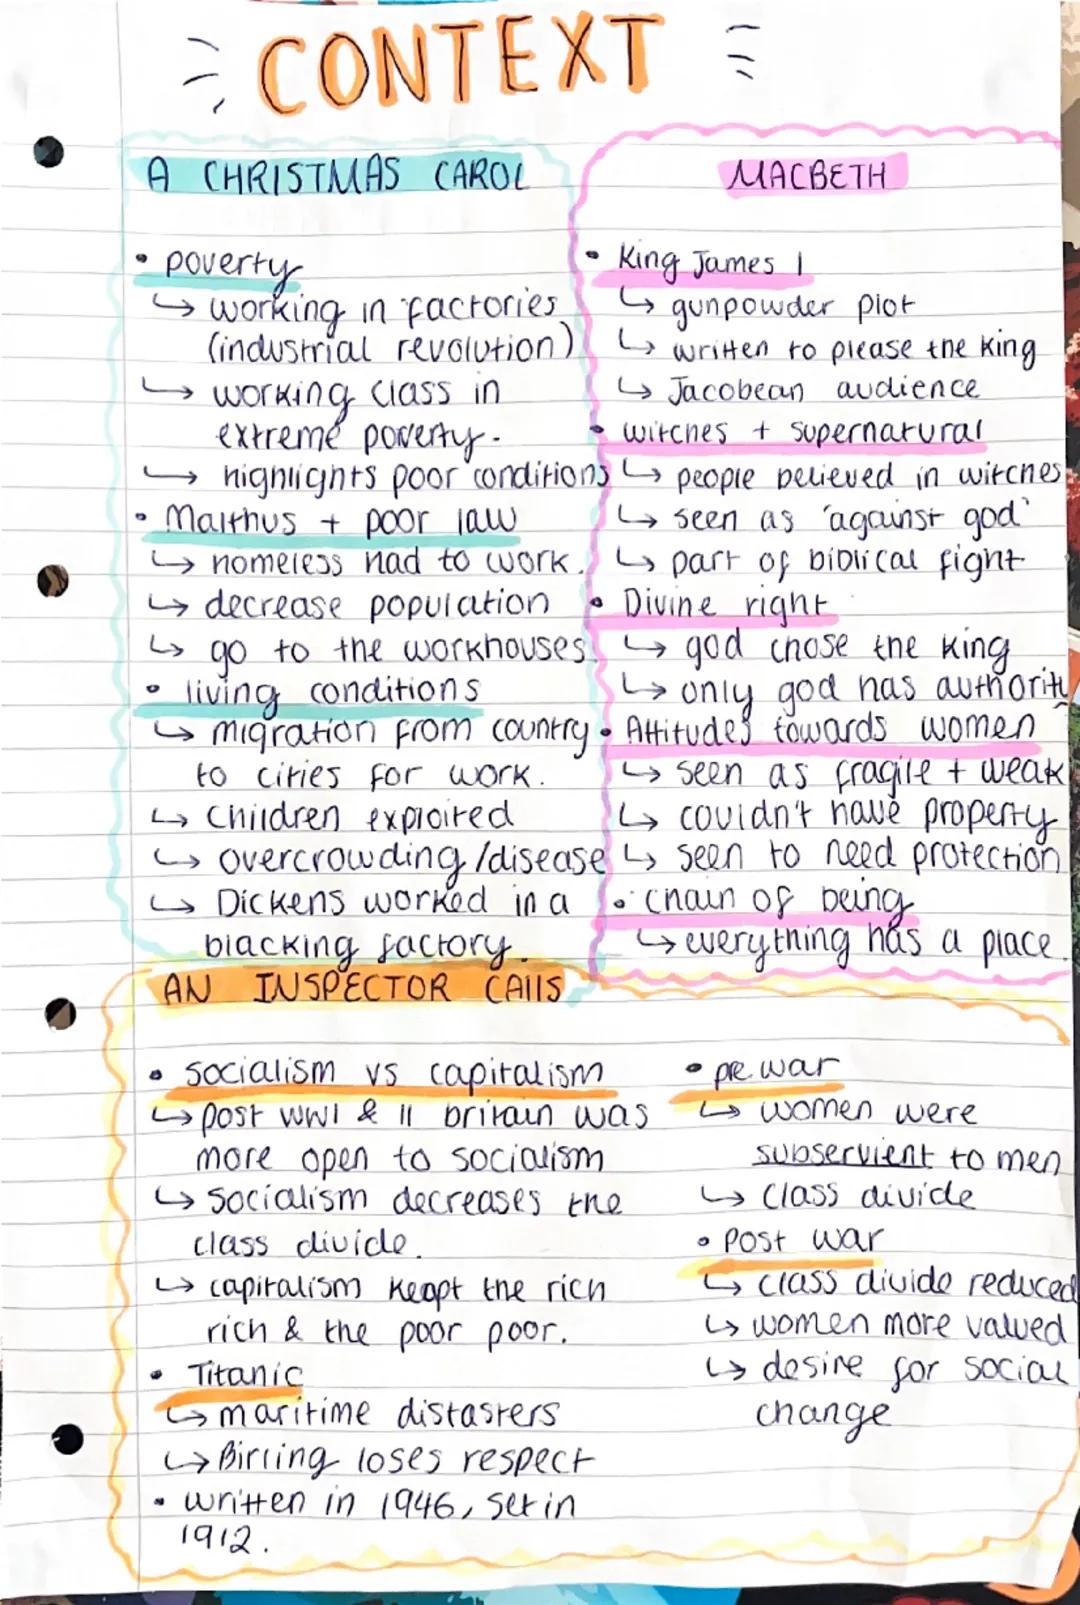 CONTEXT
A CHRISTMAS CAROL
• poverty
↳ working in factories
(industrial revolution)
↳ working class in
extreme poverty.
↳ highlights poor conditions
• Malthus + poor law
↳ homeless had to work.
↳ decrease population
↳ go to the workhouses.
• living conditions
↳ migration from country
to cities for work.
↳ Children exploited
↳ overcrowding/disease
↳ Dickens worked in a
blacking factory.
MACBETH
• King James I
↳ gunpowder plot
↳ written to please the King
↳ Jacobean audience
• witches + supernatural
↳ people believed in witches
↳ seen as 'against god'
↳ part of biblical fight
• Divine right
↳ god chose the King
↳ only god has authority
• Attitudes towards women
↳ seen as fragile + weak
↳ couldn't have property
↳ seen to need protection
• chain of being
↳ everything has a place.
AN INSPECTOR CAllS
• socialism vs capitalism
↳ post WWI & II britain was
more open to socialism
↳ socialism decreases the
class divide.
↳ capitalism keapt the rich
rich & the poor poor.
• Titanic
↳ maritime distasters
↳ Birling loses respect
• written in 1946, set in
1912.
• pre war
↳ women were
subservient to men
↳ class divide
• Post war
↳ class divide reduced
↳ women more valued
↳ desire for social
change